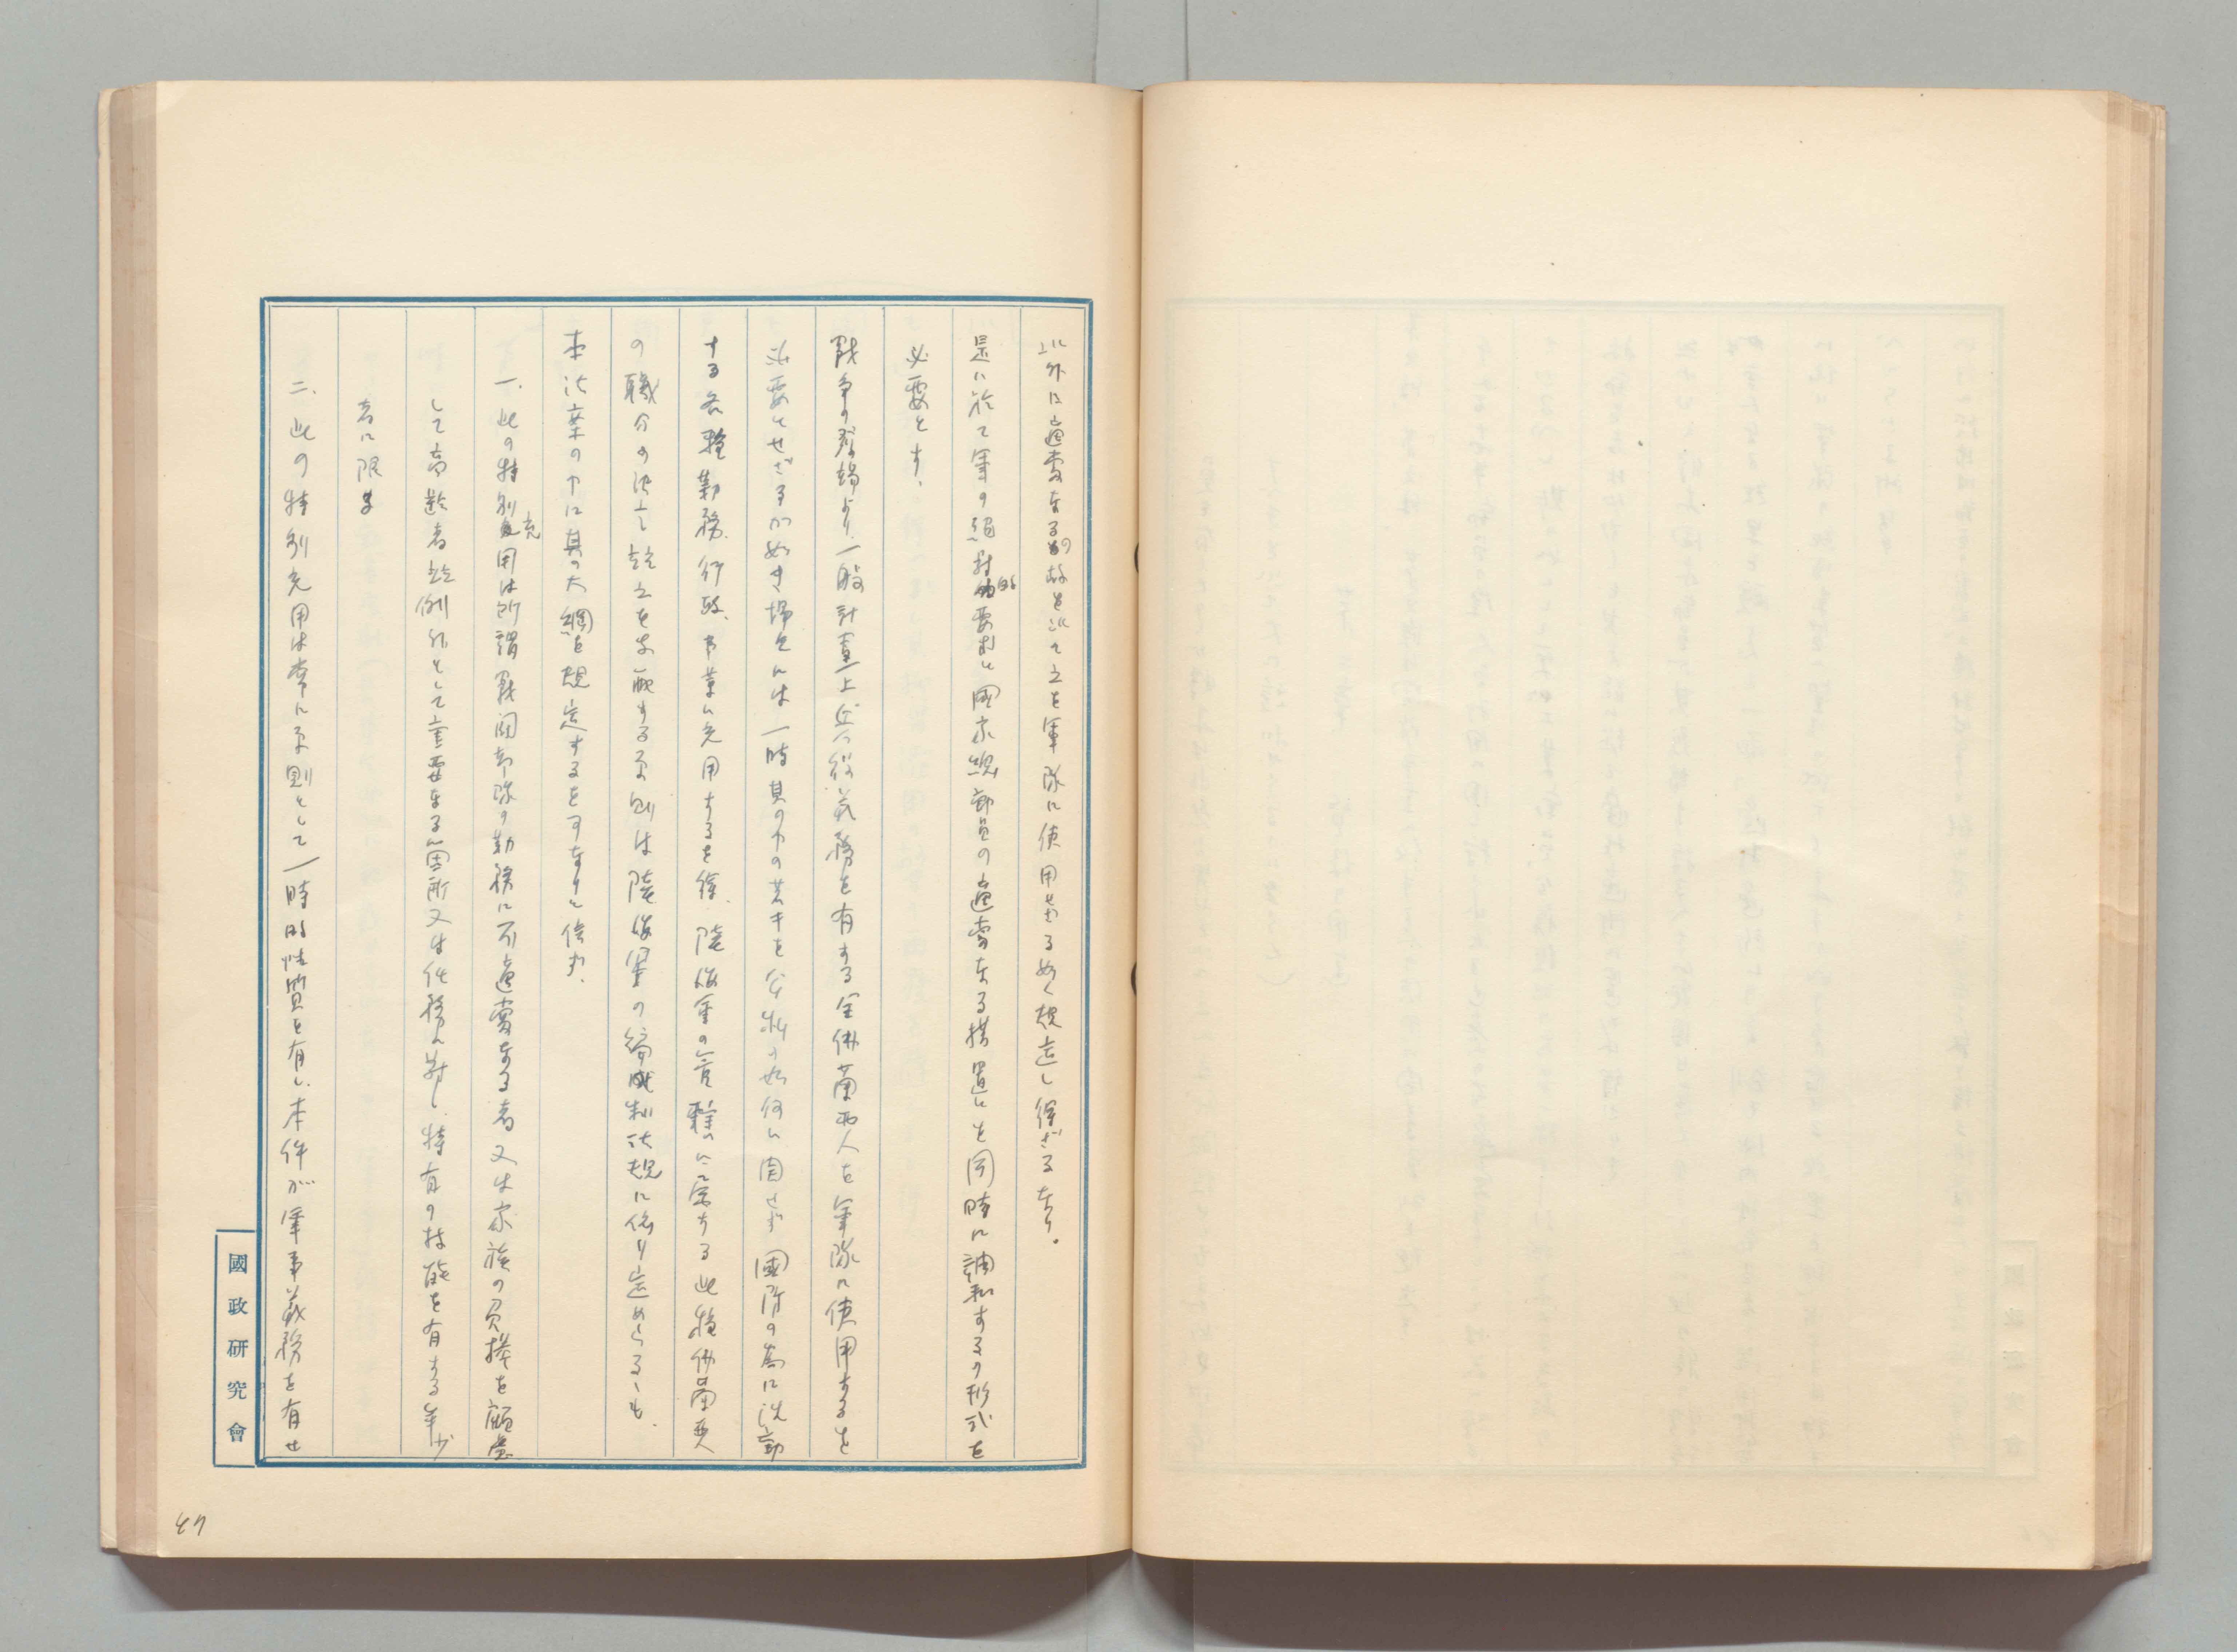 以外に適当なるの故を以て之を軍隊に使用せざる如く規定し得ざるなり。
是に於て軍の絶対的要求と国家総動員の適当なる措置とを同時に調和するの形式を
必要とす、
戦争の登場より、一般計画上兵役義務を有する全仏蘭西人を軍隊に使用するを
必要とせざるが如き場合には一時其の中の若干を分科の如何に関せず国防の為に活動
する各種勤務、行政、事業に充用するを得、陸海軍の管轄に属する此種仏蘭西人
の職分の決定竝之を支配する原則は陸海軍の編成制法規に依り定めらるゝも、
本法案の中に其の大綱を規定するを可なりと信ず、
一、此の特別充用は所謂戦闘部隊の勤務に不適当なる者又は家族の負擔を顧慮
して高齢者竝例外として重要なる箇所又は任務に対し特有の技能を有する年少
者に限る
二、此の特別充用は常に原則として一時的性質を有し、本件が軍事義務を有せ
國政研究會
47